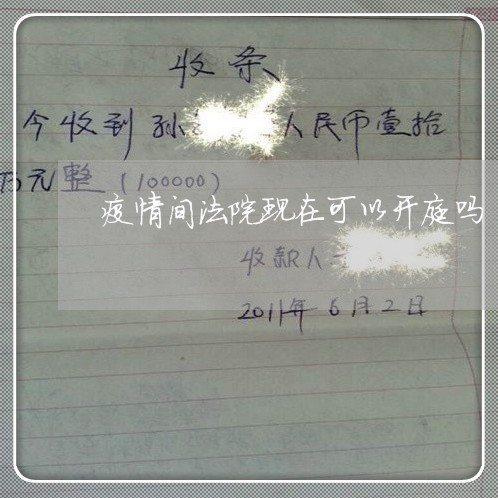 收条
今收到孙人民币壹拾
万元整（100000）
疫情间法院现在可以开庭吗
收款人
2011年6月2日